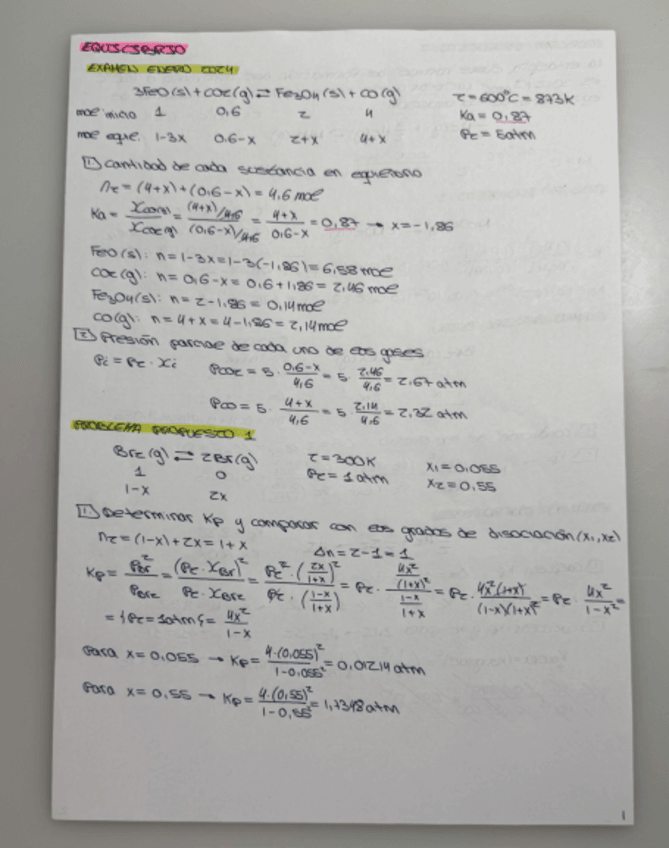 EQUILIBRIO
EXAMEN ENERO 2024
3FeO(s) + CO2(g) ⇄ Fe3O4(s) + CO(g) T = 600°C = 873K
mol inicio 1 0,6 2 4 Ka = 0,87
mol equil. 1-3x 0,6-x 2+x 4+x Pt = 5atm
1 Cantidad de cada sustancia en equilibrio
nt = (4+x) + (0,6-x) = 4,6 mol
Ka = XCO(g)/XCO2(g) = ((4+x)/4,6)/((0,6-x)/4,6) = (4+x)/(0,6-x) = 0,87 → x = -1,86
FeO(s): n = 1-3x = 1-3(-1,86) = 6,58 mol
CO2(g): n = 0,6-x = 0,6+1,86 = 2,46 mol
Fe3O4(s): n = 2-1,86 = 0,14 mol
CO(g): n = 4+x = 4-1,86 = 2,14 mol
2 Presión parcial de cada uno de los gases
Pi = Pt · Xi PCO2 = 5 · (0,6-x)/4,6 = 5 · 2,46/4,6 = 2,67 atm
PCO = 5 · (4+x)/4,6 = 5 · 2,14/4,6 = 2,32 atm
PROBLEMA PROPUESTO 1
Br2(g) ⇄ 2Br(g) T = 300K x1 = 0,055
1 0 Pt = 1 atm x2 = 0,55
1-x 2x
1 Determinar Kp y comparar con los grados de disociación (x1, x2)
nt = (1-x) + 2x = 1+x Δn = 2-1 = 1
Kp = PBr²/PBr2 = (Pt · XBr)²/(Pt · XBr2) = (Pt² · (2x/(1+x))²)/(Pt · ((1-x)/(1+x))) = Pt · (4x²/(1+x)²)/((1-x)/(1+x)) = Pt · 4x²(1+x)/((1-x)(1+x)²) = Pt · 4x²/(1-x²) =
= {Pt = 1atm} = 4x²/(1-x)
Para x = 0,055 → Kp = 4·(0,055)²/(1-0,055²) = 0,01214 atm
Para x = 0,55 → Kp = 4·(0,55)²/(1-0,55²) = 1,7348 atm
1